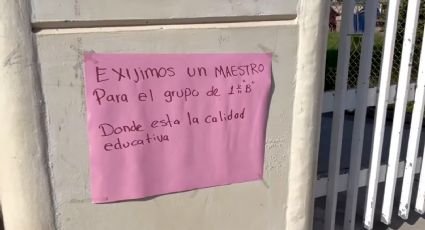 EXIJIMOS UN MAESTRO
Para el grupo de 1º "B"
Donde esta la calidad
educativa